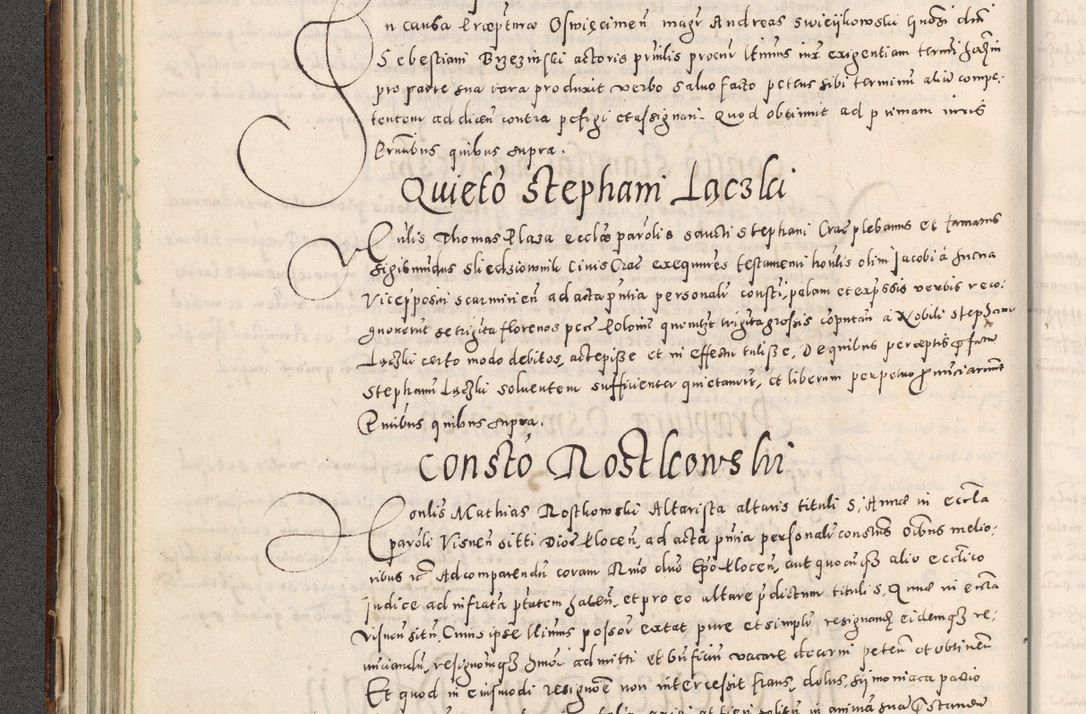 n causa Præpturæ Oswięcimeñ magr Andreas Swieykowski
Sebestiani Brzezinski actoris prñtis procur llmus iux exigentiam termi hodñi
pro parte sua rata produxit verbo saluo facto petens sibi terminũ aliũ compe-
tentem ad dicen contra pefigi et assignari. Quod obtinuit ad primam iuris
Pñtibus quibus supra.
Quietõ Stephani Lączki
Thomas Plaza ecclæ parõlis sancti Stephani Crac plebanus et famatus
Sigismundus civis Crac exequutores testamenti honlis olim Jacobi à
in scarminen ad acta pñtia personalr consti, palam et expssis verbis reco-
gnouerut se triginta florenos pecc Polonic quemlibet triginta grossis coputan à Nobili Stephano
Lączki certo modo debitos, accepisse et in effectu tulisse, De quibus perceptis
Stephanũ Lączki soluentem sufficienter quietauert, et liberum perpetuo pnunciarunt
Pñtibus quibus supra.
Constõ Rostkowski
Honlis Mathias Rostkowski Altarista altaris tituli S. Annæ in eccla
parõli Visneñ sitti Dioc Ploceñ, ad acta pñtia personalr constitus oibus melio-
ribus rc Ad comparendũ coram Rmo dno Epõ Ploceñ, aut quocuq alio ecclico
judice ad infrata ptatem haben, et pro eo altare pdictum tituli S. Annæ in eccla
Visneñ sitũ, Cuius ipse llmus possor extat pure et simplr resignandũ eidemq re-
nunciandũ, resignonemq hmoi admitti et bnficiũ vacare decerni petenđ et obtinenđ
Et quod in eiusmodi resignõe non intercessit fraus, dolus, symoniaca pactio
in animã suã pstandũ